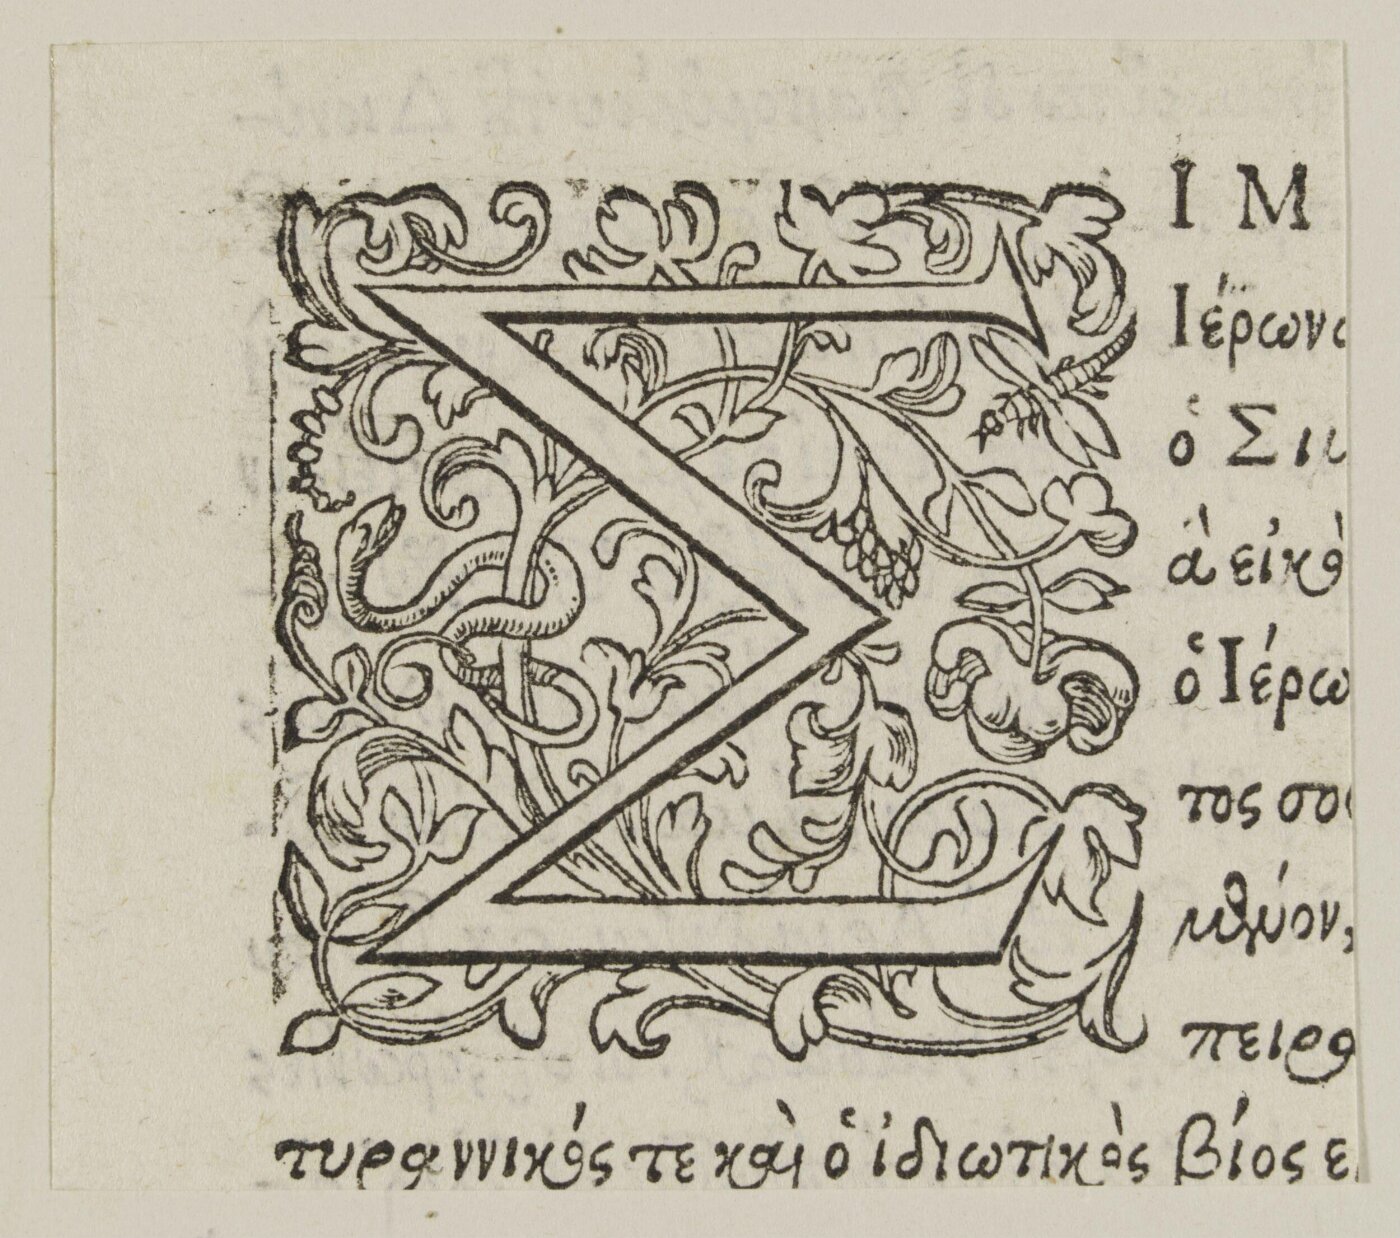 Σ Ι Μ
Ἱέρων
ὁ Σι
ἃ εἰκὸ
ὁ Ἱέρω
τος σο
κθύον,
πειρα
τυραννικός τε καὶ ὁ ἰδιωτικὸς βίος ε